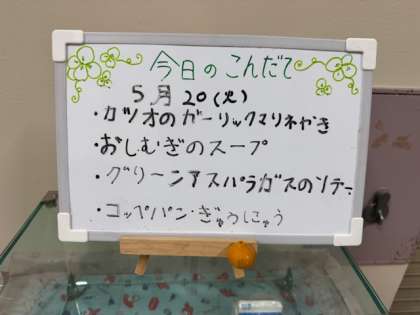 今日のこんだて
5月20(火)
・カツオのガーリックマリネやき
・おしむぎのスープ
・グリーンアスパラガスのソテー
・コッペパン・ぎゅうにゅう